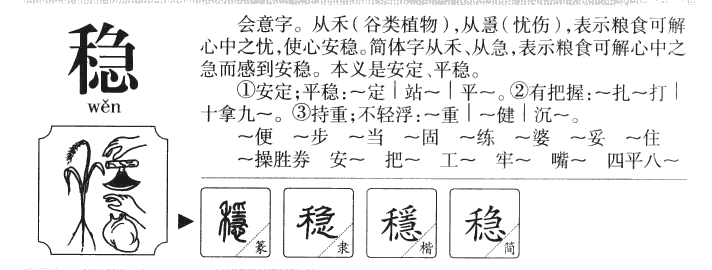 稳
wěn
会意字。从禾(谷类植物),从㥯(忧伤),表示粮食可解
心中之忧,使心安稳。简体字从禾、从急,表示粮食可解心中之
急而感到安稳。本义是安定、平稳。
①安定;平稳:～定｜站～｜平～。②有把握:～扎～打｜
十拿九～。③持重;不轻浮:～重｜～健｜沉～。
～便 ～步 ～当 ～固 ～练 ～婆 ～妥 ～住
～操胜券 安～ 把～ 工～ 牢～ 嘴～ 四平八～
穩 篆
稳 隶
穩 楷
稳 简